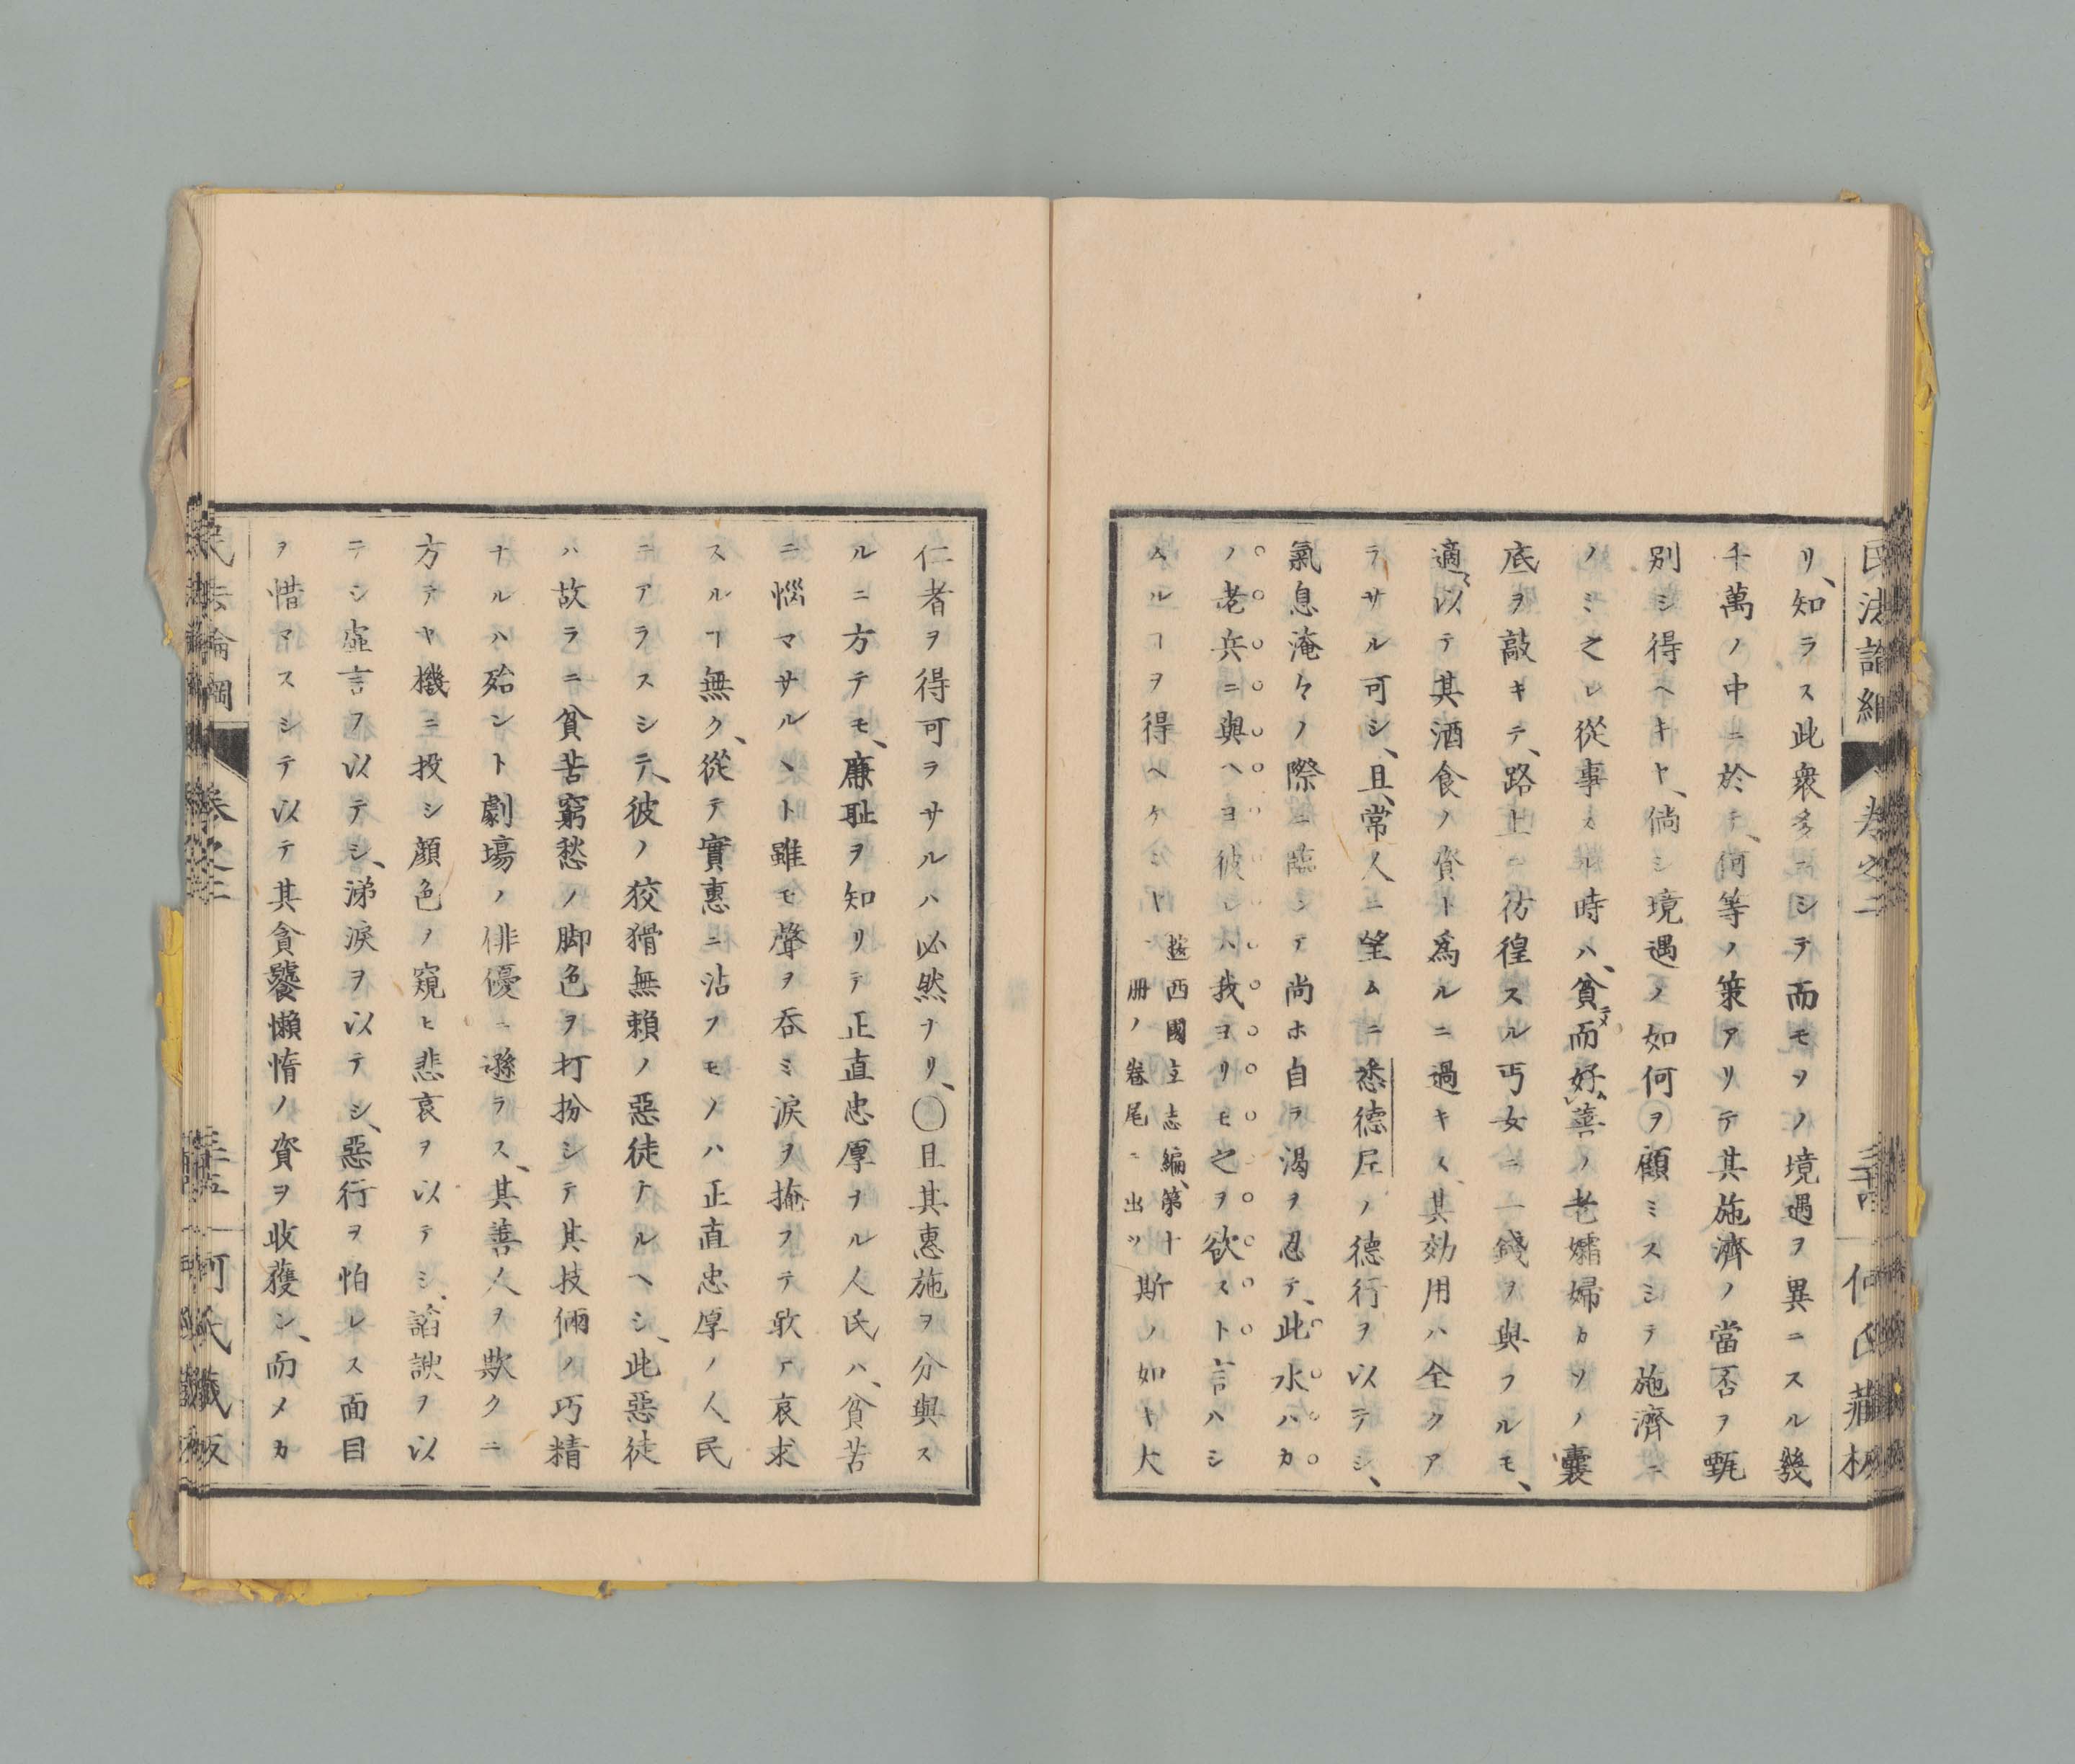 リ、知ラス此衆多ニシテ而モヲノ境遇ヲ異ニスル幾
千萬ノ中ニ於テ、何等ノ策アリテ其施濟ノ當否ヲ甄
別シ得ヘキヤ、倘シ境遇ノ如何ヲ顧ミスシテ施濟ニ
ノミ之レ從事スル時ハ、貧而好善ノ老孀婦カソノ嚢
底ヲ敲キテ、路上ニ彷徨スル丐女ニ一錢ヲ與フルモ、
適〻以テ其酒食ノ資ト爲ルニ過キス、其効用ハ全クア
ラサル可シ、且、常人ニ望ムニ悉德尼ノ德行ヲ以テシ、
氣息淹々ノ際ニ臨シテ尚ホ自ラ渴ヲ忍テ、此水ハカ
ノ老兵ニ與ヘヨ彼レハ我ヨリモ之ヲ欲スト言ハシ
ムルヿヲ得ヘケンヤ、
按西國立志編、第十
一册ノ卷尾ニ出ツ
斯ノ如キ大
民法論綱 卷之二 三十四 何氏藏板
仁者ヲ得可ラサルハ必然ナリ、〇且其惠施ヲ分與ス
ルニ方テモ、廉耻ヲ知リテ正直忠厚ヲル人民ハ、貧苦
ニ惱マサルヽト雖モ聲ヲ呑ミ淚ヲ掩フテ敢ア哀求
スルヿ無ク、從テ實惠ニ沾フモノハ正直忠厚ノ人民
ニアラスシテ、彼ノ狡猾無賴ノ惡徒ナルヘシ、此惡徒
ハ故ラニ貧苦窮愁ノ脚色ヲ打扮シテ其技倆ノ巧精
ナルハ殆ント劇塲ノ俳優ニ遜ラス、其善人ヲ欺クニ
方テヤ機ニ投シ顔色ノ窺ヒ悲哀ヲ以テシ、諂諛ヲ以
テシ虛言ヲ以テシ、涕淚ヲ以テシ、惡行ヲ怕レス面目
ヲ惜マスシテ以テ其貪饕懶惰ノ資ヲ收穫シ、而メカ
民法論綱 卷之二 三十五 何氏藏板